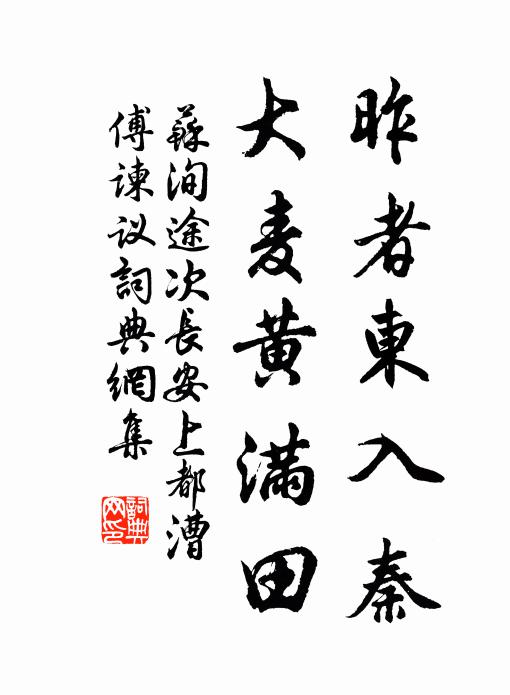 昨者東入秦
大麦黄滿田
蘇洵途次長安上都漕
傅谏议詞典網集
詞典網印